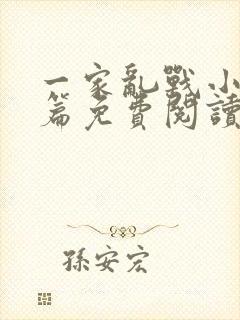 一家亂戰小
篇免費閱讀
孫安宏